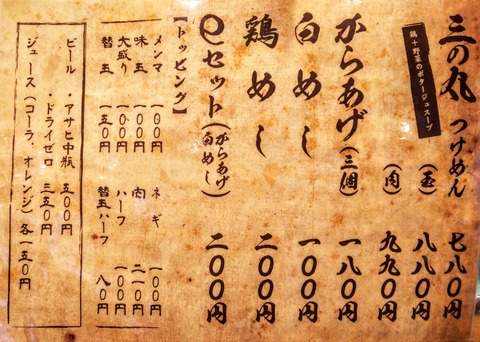 三の丸 つけめん 七八〇円
鶏+野菜のポタージュスープ
(玉) 八八〇円
(肉) 九九〇円
からあげ(三個) 一八〇円
白めし 一〇〇円
鶏めし 二〇〇円
eセット(からあげ 白めし) 二〇〇円
【トッピング】
メンマ 一〇〇円 ネギ 一五〇円
味玉 一〇〇円 肉 二一〇円
大盛り 一〇〇円 ハーフ 一〇〇円
替玉 一五〇円 替玉ハーフ 八〇円
ビール・アサヒ中瓶 五〇〇円
・ドライゼロ 三五〇円
ジュース(コーラ、オレンジ)各一五〇円